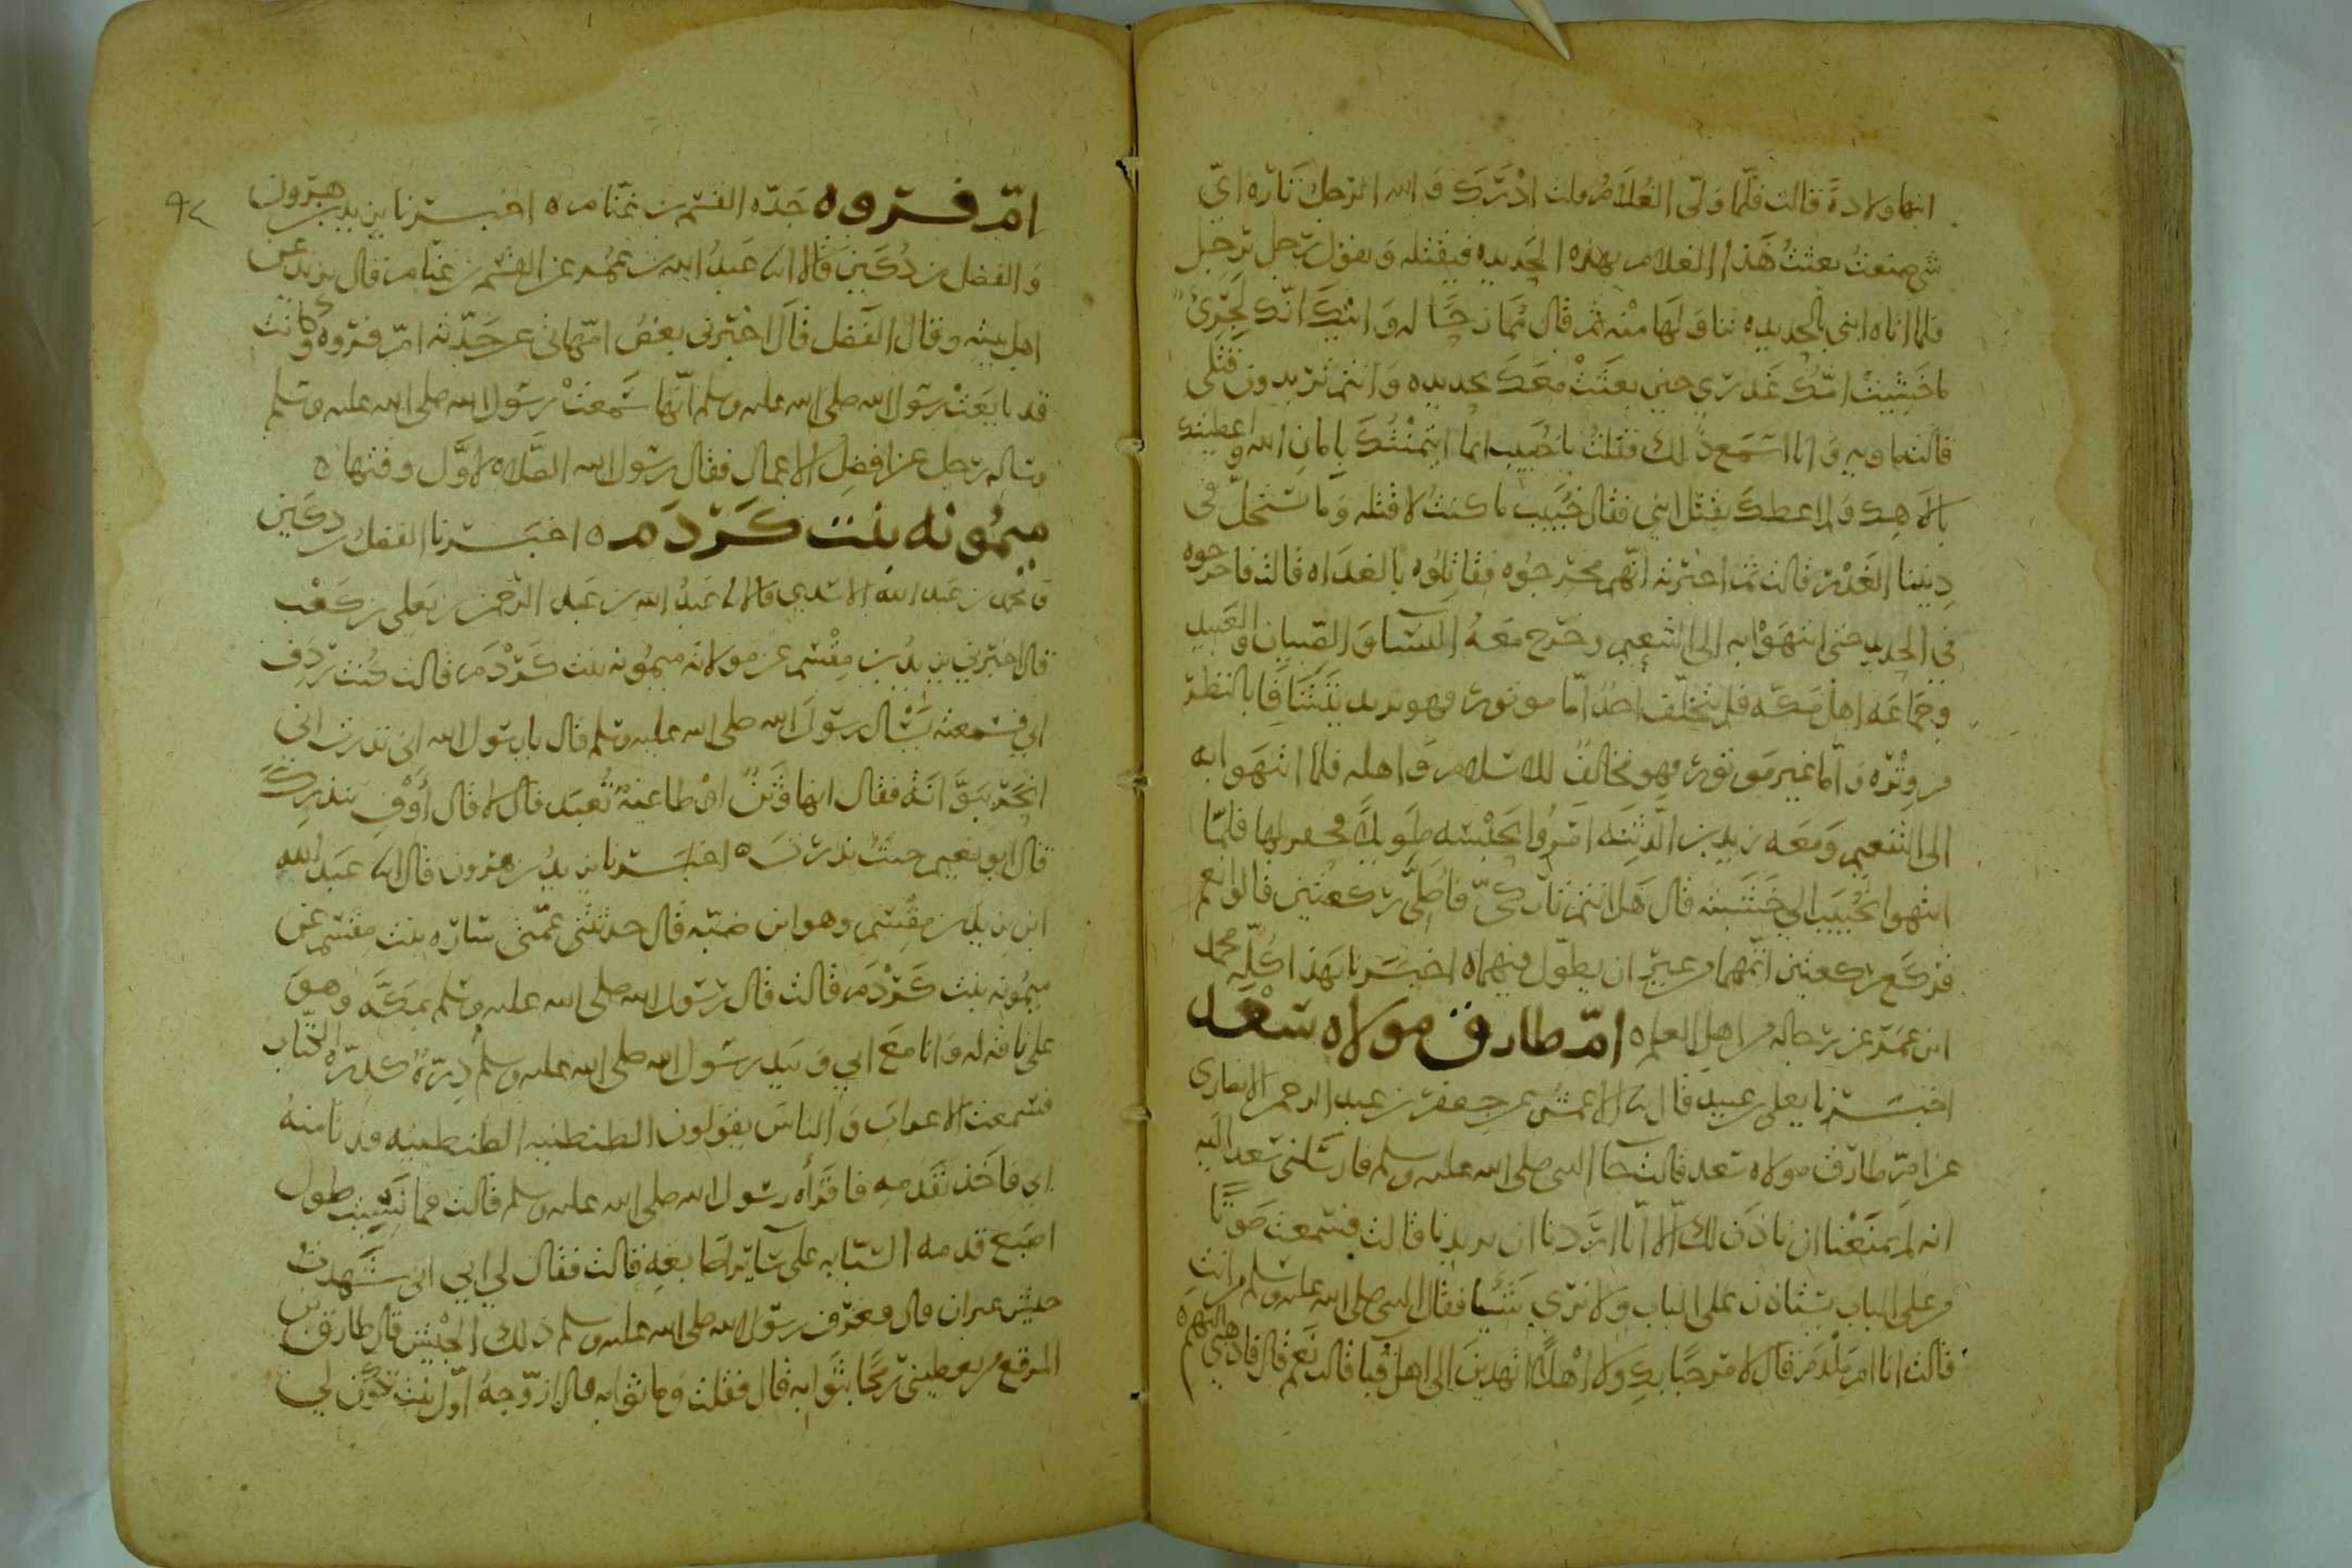 انها ولادة قالت فلما ولى الغلام قلت ادرك والله الرجل ثاره اي
شي صنعت بعثت هذا الغلام بهذه الحديده فيقتله ويقول رجل برجل
فلما اتاه ابني بالحديده تناولها منه ثم قال ممازحا له وابيك انك لجرئ
ما خشيت امك غدري حين بعثت معك بحديده وانتم تريدون قتلي
قالت ماويه وانا اسمع ذلك فقلت يا خبيب انما ائتمنتك بامان الله واعطيتك
بالاهك ولم اعطك بقتل ابني فقال خبيب ما كنت لاقتله وما نستحل في
ديننا الغدر قالت ثم اخبرته انهم مخرجوه فقاتلوه بالغداه قالت فاخرجوه
في الحديد حتى انتهوا به الى التنعيم وخرج معه النسا والصبيان والعبيد
وجماعه اهل مكه فلم يتخلف احد اما موتور فهو يريد يتشافا بالنظر
من وتره واما غير موتور فهو مخالف للاسلام واهله فلما انتهوا به
الى التنعيم ومعه زيد بن الدثنه امروا بخشبه طويله فحفر لها فلما
انتهوا بخبيب الى خشبته قال هل انتم تاركي فاصلي ركعتين قالوا نعم
فركع ركعتين اتمهما من غير ان يطول فيهما ه اخبرنا بهذا كله محمد
ابن عمر عن رجاله من اهل العلم ه ام طارق مولاه سعد
اخبرنا يعلى بن عبيد قال نا الاعمش عن جعفر بن عبد الرحمن الانصاري
عن ام طارق مولاه سعد قالت جا النبي صلى الله عليه وسلم فارسلني سعد اليه
انه لم يمنعنا ان ناذن لك الا انا اردنا ان تزيدنا قالت فسمعت صوتا
وعلى الباب يستاذن على الباب ولا نرى شيئا فقال النبي صلى الله عليه وسلم من انت
قالت انا ام ملدم قال لا مرحبا بك ولا اهلا اتهدين الى اهل قبا قالت نعم قال فاذهبي اليهم ه
٩٢
ام فروه جده القسم بن غنام ه اخبرنا يزيد بن هرون
والفضل بن دكين قالا نا عبد الله بن عمر عن القسم بن غنام قال يزيد عن
اهل بيته وقال الفضل قال اخبرني بعض امهاتي عن جدته ام فروه وكانت
قد بايعت رسول الله صلى الله عليه وسلم انها سمعت رسول الله صلى الله عليه وسلم
وساله رجل عن افضل الاعمال فقال رسول الله الصلاه لاول وقتها ه
ميمونه بنت كردم ه اخبرنا الفضل بن دكين
ومحمد بن عبد الله الاسدي قالا نا عبد الله بن عبد الرحمن بن يعلى بن كعب
قال اخبرني يزيد بن مقسم عن مولاته ميمونه بنت كردم قالت كنت ردف
ابي فسمعته يسال رسول الله صلى الله عليه وسلم قال يا رسول الله اني نذرت اني
انحر ببوانه فقال ابها وثن او طاغيه تعبد قال لا قال أوف بنذرك
قال ابو نعيم حيث نذرت ه اخبرنا يزيد بن هرون قال انا عبد الله
ابن يزيد بن مقسم وهو ابن ضبه قال حدثتني عمتي ساره بنت مقسم عن
ميمونه بنت كردم قالت قال رسول الله صلى الله عليه وسلم بمكه وهو
على ناقه له وانا مع ابي وبيد رسول الله صلى الله عليه وسلم دره كدره الكتاب
فسمعت الاعراب والناس يقولون الطبطبيه الطبطبيه فدنا منه
ابي فاخذ بقدمه فاقراه رسول الله صلى الله عليه وسلم قالت فما نسيت طول
اصبع قدمه السبابه على ساير اصابعه قالت فقال لي ابي اني شهدت
جيش عبران قال وعرف رسول الله صلى الله عليه وسلم ذلك الجيش قال طارق بن
المرقع من يعطيني رمحا بثوابه قال فقلت وما ثوابه قال ازوجه اول بنت تكون لي